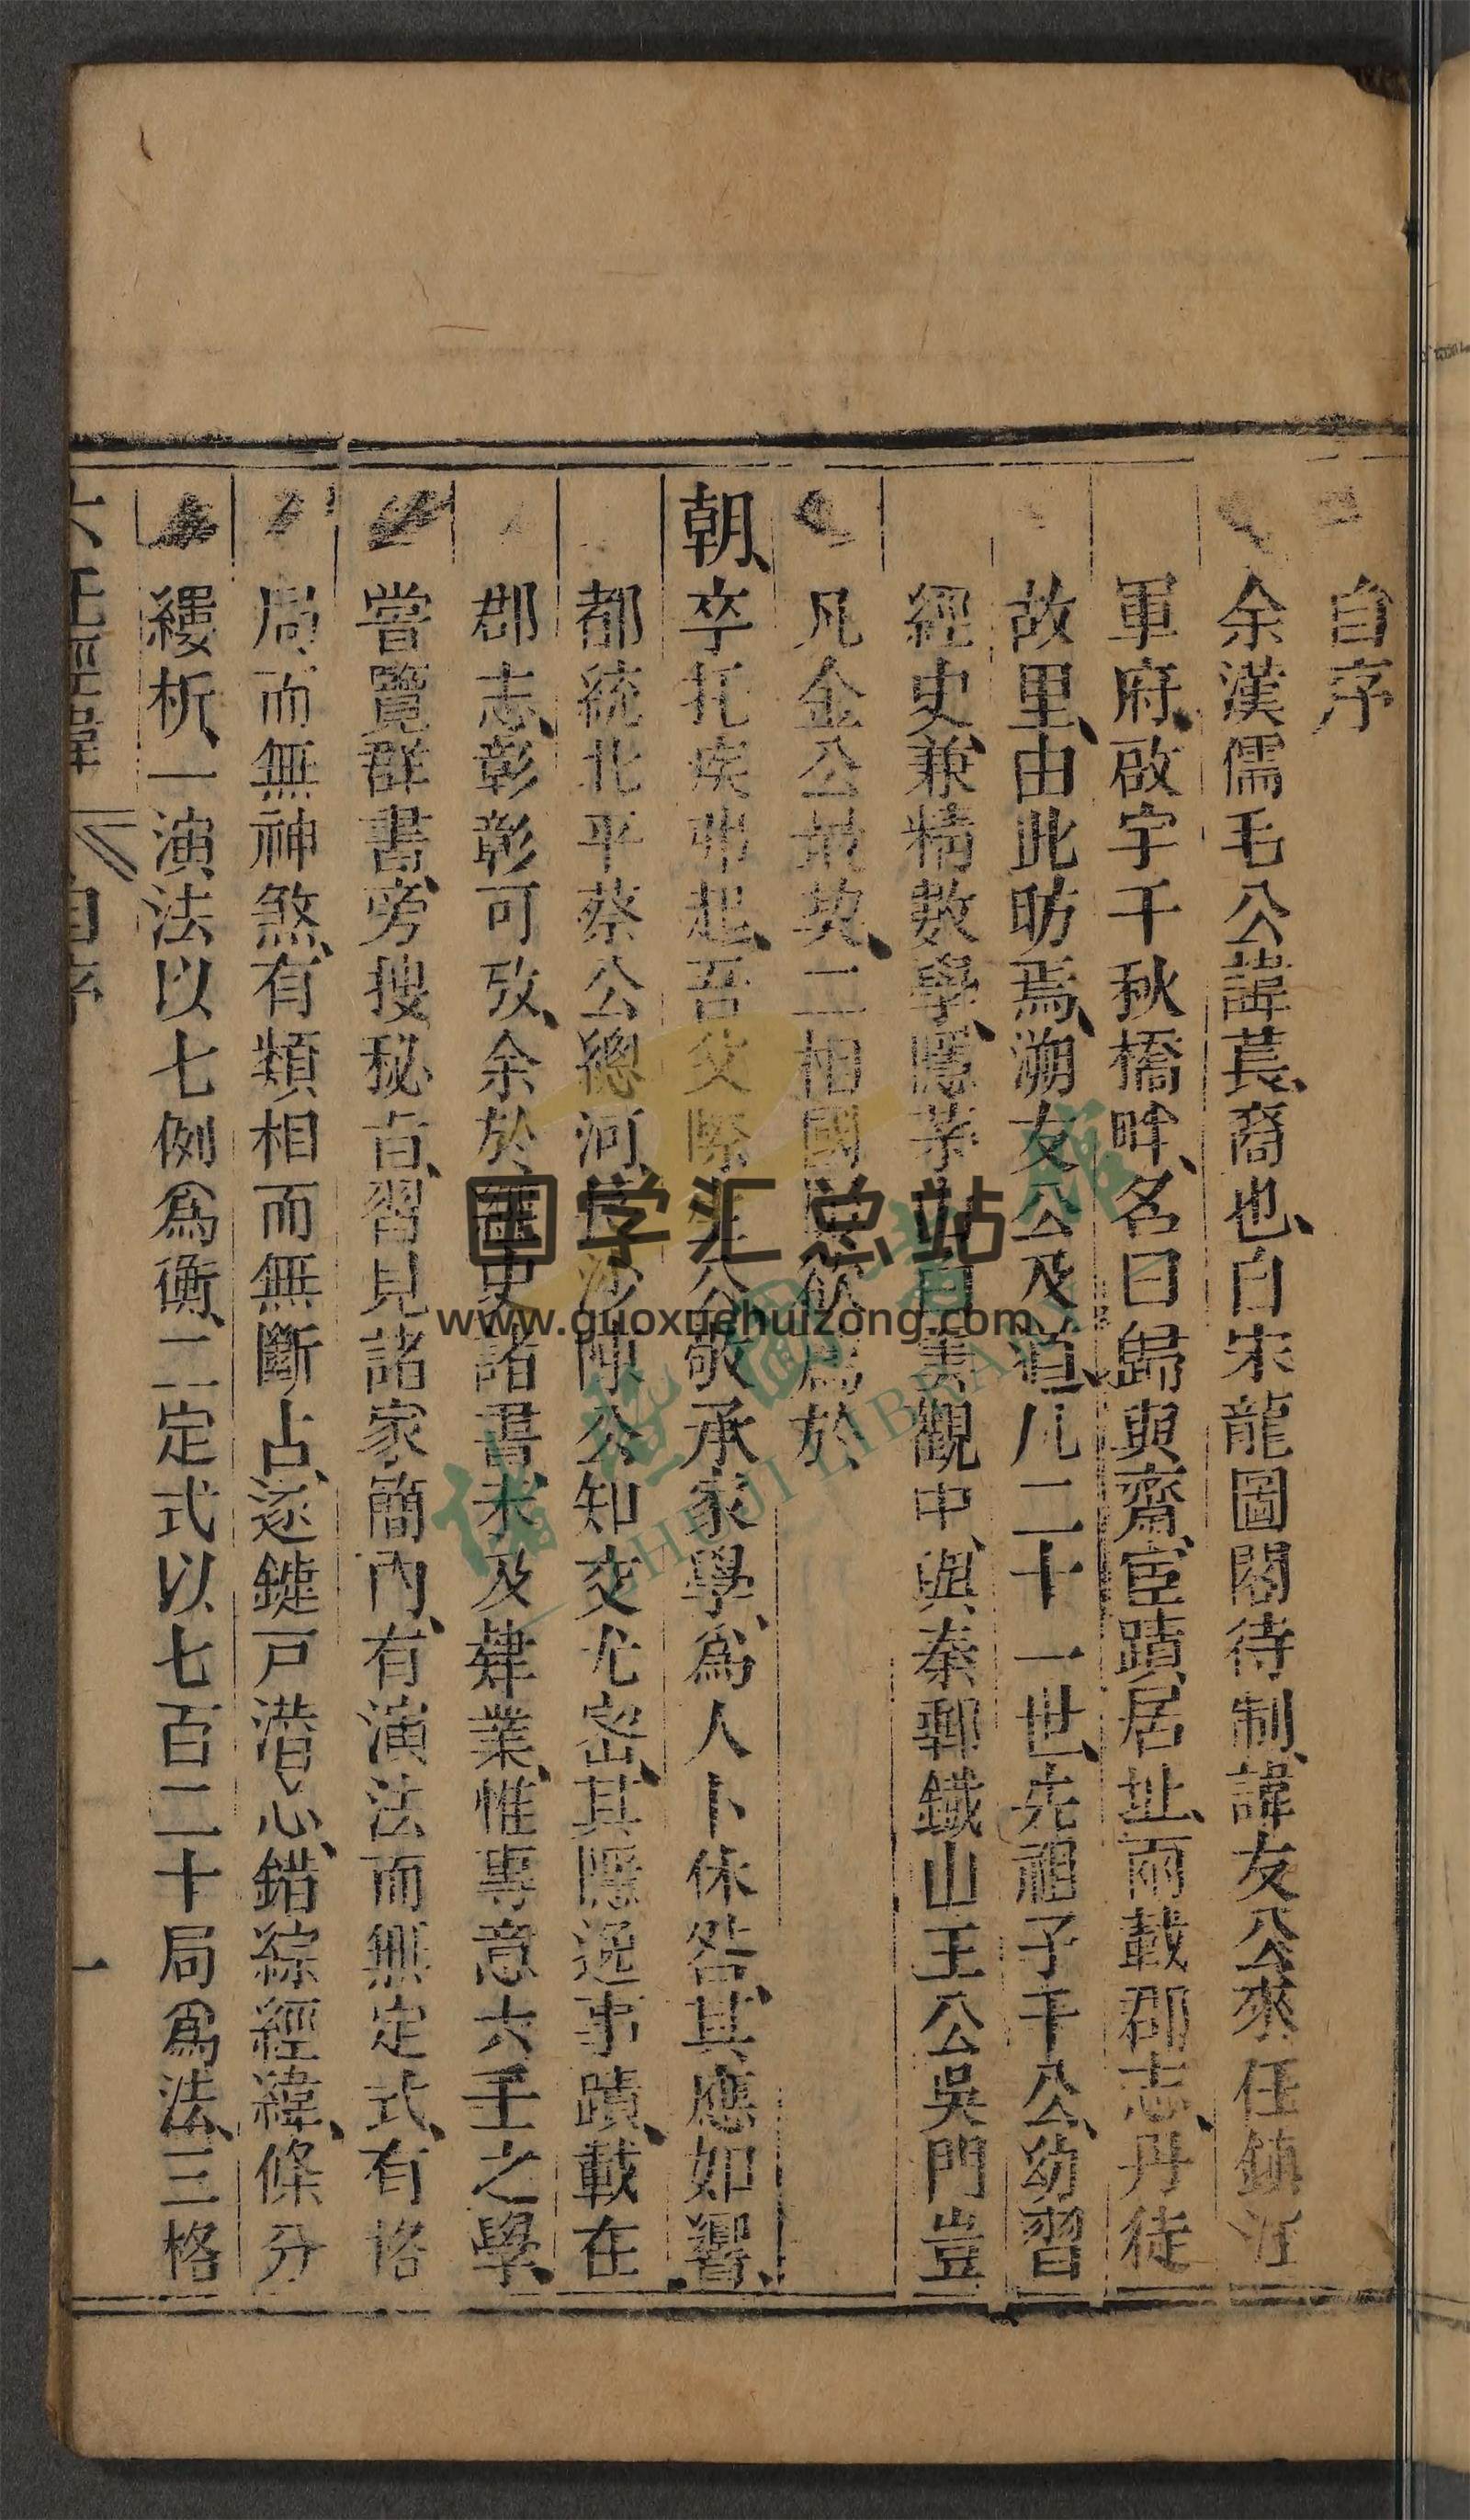 自序
余漢儒毛公諱萇、裔也、自宋龍圖閣待制、諱友公來任鎮江
軍府、啟宇千秋橋畔、名曰歸與齋、宦蹟居址、兩載郡志、丹徒
故里、由此昉焉、溯友公及道、凡二十一世、先祖子千公、幼習
經史、兼精數學、隱茅山白雲觀中、與秦郵鐵山王公吳門豈
凡金公最契、二相國欲薦於
朝、卒托疾弗起、吾父際生公敬承家學、爲人卜休咎、其應如響、
都統北平蔡公總河長沙陳公知交尤密、其隱逸事蹟、載在
郡志、彰彰可攷、余於經史諸書、未及肄業、惟專意六壬之學、
嘗覽群書、旁搜秘旨、習見諸家簡內、有演法而無定式、有格
局而無神煞、有類相而無斷占、逐鍵戸潛心、錯綜經緯、條分
縷析、一演法以七例爲衡、二定式以七百二十局爲法、三格
六壬經緯
自序
一
国学汇总站
www.guoxuehuizong.com
SHUJI LIBRARY